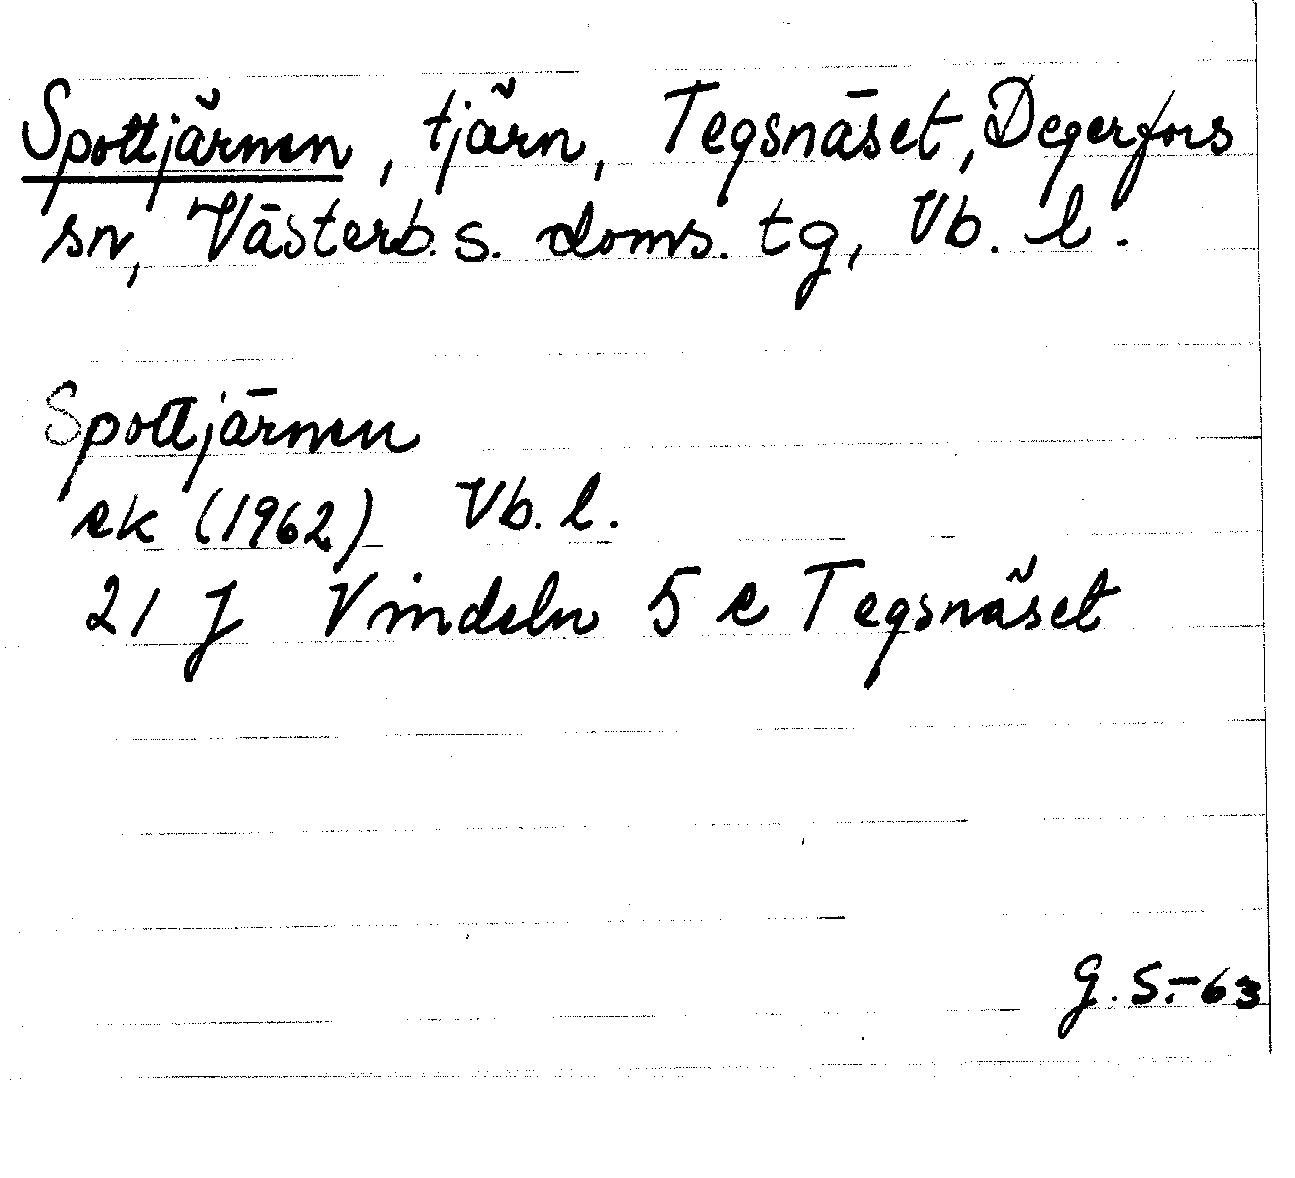 Spottjärnen, tjärn, Tegsnäset, Degerfors
sn, Västerb. s. doms. tg, Vb. l.
Spottjärnen
ek (1962) Vb. l.
21 J Vindeln 5 e Tegsnäset
G. S.-63